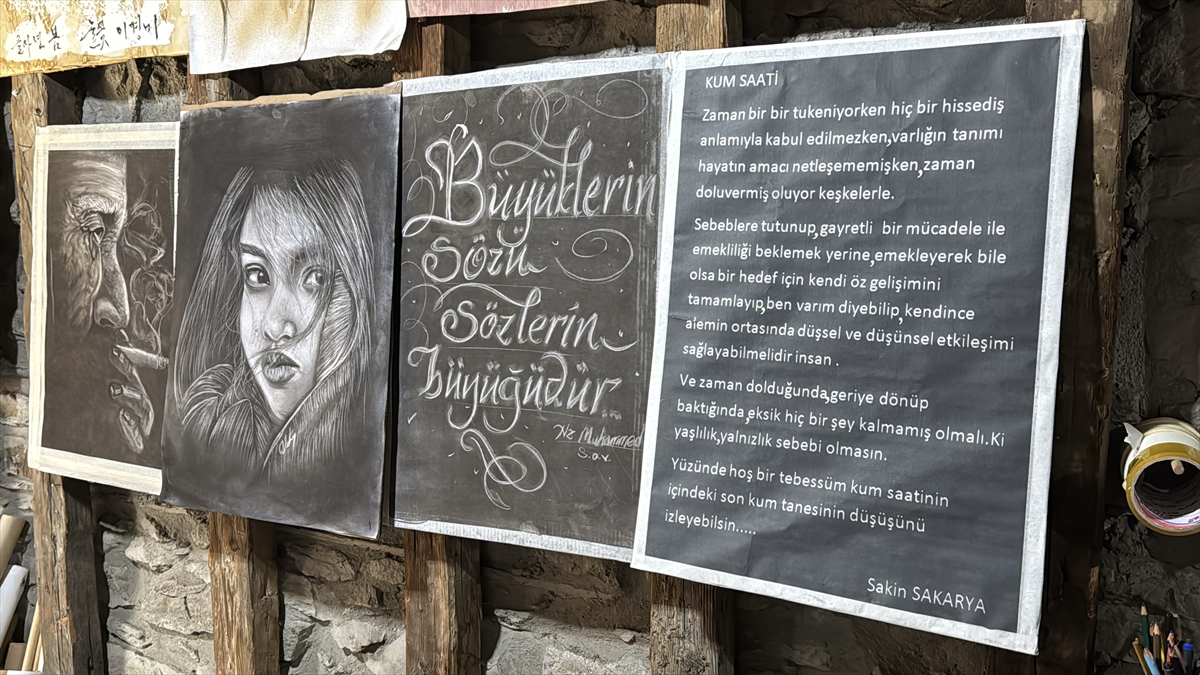 올라면 봄
이경미
Büyüklerin
Sözü
Sözlerin
büyüğüdür...
Hz Muhammed
S.av.
KUM SAATİ
Zaman bir bir tukeniyorken hiç bir hissediş
anlamıyla kabul edilmezken,varlığın tanımı
hayatın amacı netleşememişken,zaman
doluvermiş oluyor keşkelerle.
Sebeblere tutunup,gayretli bir mücadele ile
emekliliği beklemek yerine,emekleyerek bile
olsa bir hedef için kendi öz gelişimini
tamamlayıp,ben varım diyebilip,kendince
a'emin ortasında düşsel ve düşünsel etkileşimi
sağlayabilmelidir insan .
Ve zaman dolduğunda,geriye dönüp
baktığında,eksik hiç bir şey kalmamış olmalı.Ki
yaşlılık,yalnızlık sebebi olmasın.
Yüzünde hoş bir tebessüm kum saatinin
içindeki son kum tanesinin düşüşünü
izleyebilsin.....
Sakin SAKARYA